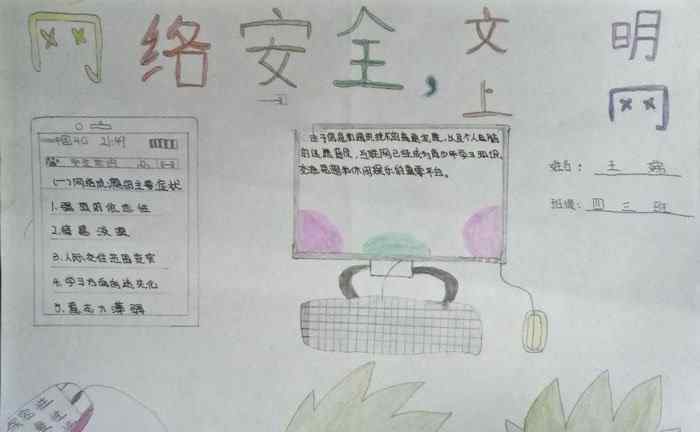 网络安全，文明
上网
中国4G 21:49
(一)网络成瘾的主要症状
1.强烈的依恋性
2.容易
3.人际交往范围变窄
4.学习方面向退化
5.意志力薄弱
由于信息和通讯技术的高速发展，以及个人电脑
的迅速普及，互联网已经成为青少年学习知识、
交流思想和休闲娱乐的重要平台。
姓名：王
班级：四三班